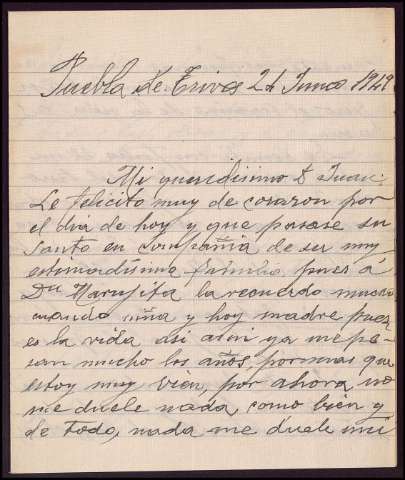 Puebla de Trives 24 Junio 1949
Mi queridisimo D Juan:
Le felicito muy de corazon por
el dia de hoy y que pasase su
santo en compañia de ser muy
estimadisima familia, pues á
Dª Marujita la recuerdo mucho
cuando niña y hoy madre pues
es la vida asi asin ya me pe-
san mucho los años, por mas que
estoy muy bien, por ahora no
me duele nada, como bien y
de todo, nada me duele mi